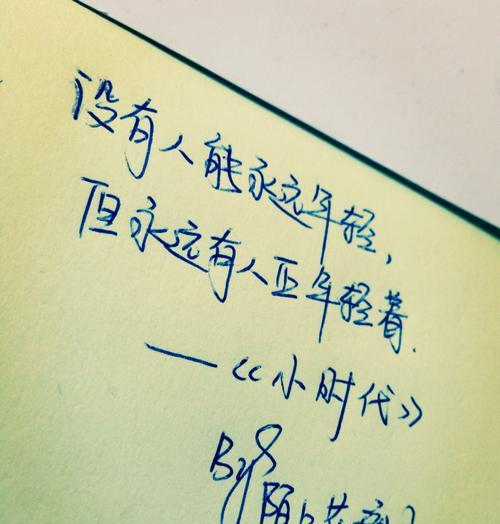 没有人能永远年轻,
但永远有人正年轻着.
—《小时代》
By